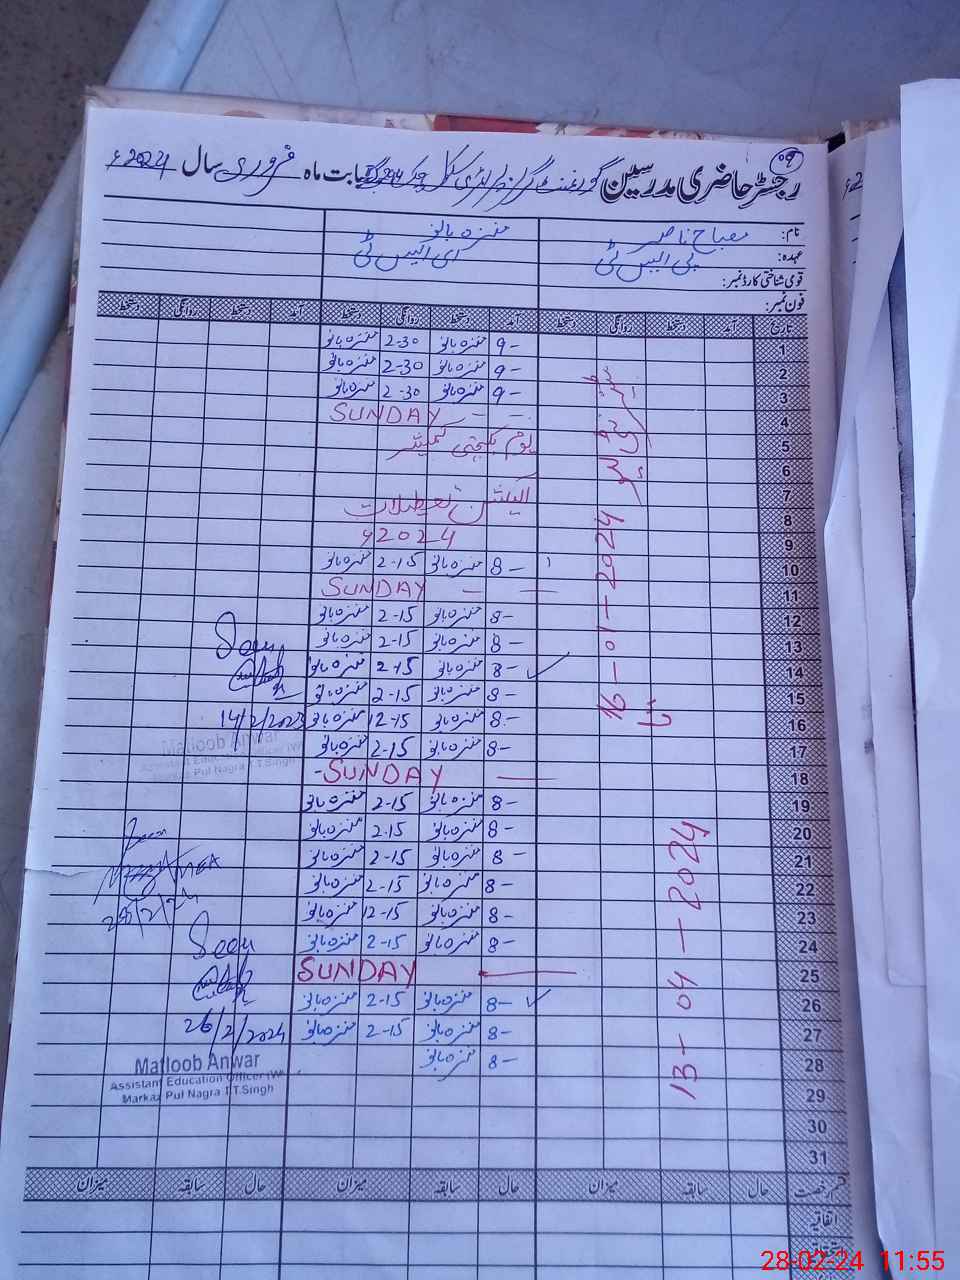 09
رجسٹر حاضری مدرسین گورنمنٹ گرلز پرائمری سکول چک بابت ماہ فروری سال 2024ء
نام: مصباح ناصر منزہ بانو
عہدہ: پی ایس ٹی ای ایس ٹی
قومی شناختی کارڈ نمبر:
فون نمبر:
تاریخ آمد دستخط روانگی دستخط آمد دستخط روانگی دستخط آمد دستخط روانگی دستخط
1 9- منزہ بانو 2-30 منزہ بانو
2 9- منزہ بانو 2-30 منزہ بانو
3 9- منزہ بانو 2-30 منزہ بانو
4 SUNDAY - -
5 یوم یکجہتی کشمیر
6
7 الیکشن تعطیلات
8
9 2024ء
10 8- منزہ بانو 2-15 منزہ بانو
11 SUNDAY - -
12 8- منزہ بانو 2-15 منزہ بانو
13 8- منزہ بانو 2-15 منزہ بانو
14 8- منزہ بانو 2-15 منزہ بانو
15 8- منزہ بانو 2-15 منزہ بانو
16 8- منزہ بانو 12-15 منزہ بانو
17 8- منزہ بانو 2-15 منزہ بانو
18 -SUNDAY -
19 8- منزہ بانو 2-15 منزہ بانو
20 8- منزہ بانو 2-15 منزہ بانو
21 8- منزہ بانو 2-15 منزہ بانو
22 8- منزہ بانو 2-15 منزہ بانو
23 8- منزہ بانو 12-15 منزہ بانو
24 8- منزہ بانو 2-15 منزہ بانو
25 SUNDAY
26 8- منزہ بانو 2-15 منزہ بانو
27 8- منزہ بانو 2-15 منزہ بانو
28 8- منزہ بانو
29
30
31
16-01-2024
تا
13-04-2024
Seen
14/2/2023
Matloob Anwar
Assistant Education Officer (W)
Markaz Pul Nagra T.T.Singh
Seen
26/2/2024
Matloob Anwar
Assistant Education Officer (W)
Markaz Pul Nagra T.T.Singh
قسم رخصت حال سابقہ میزان حال سابقہ میزان حال سابقہ میزان
اتفاقیہ
28-02-24 11:55